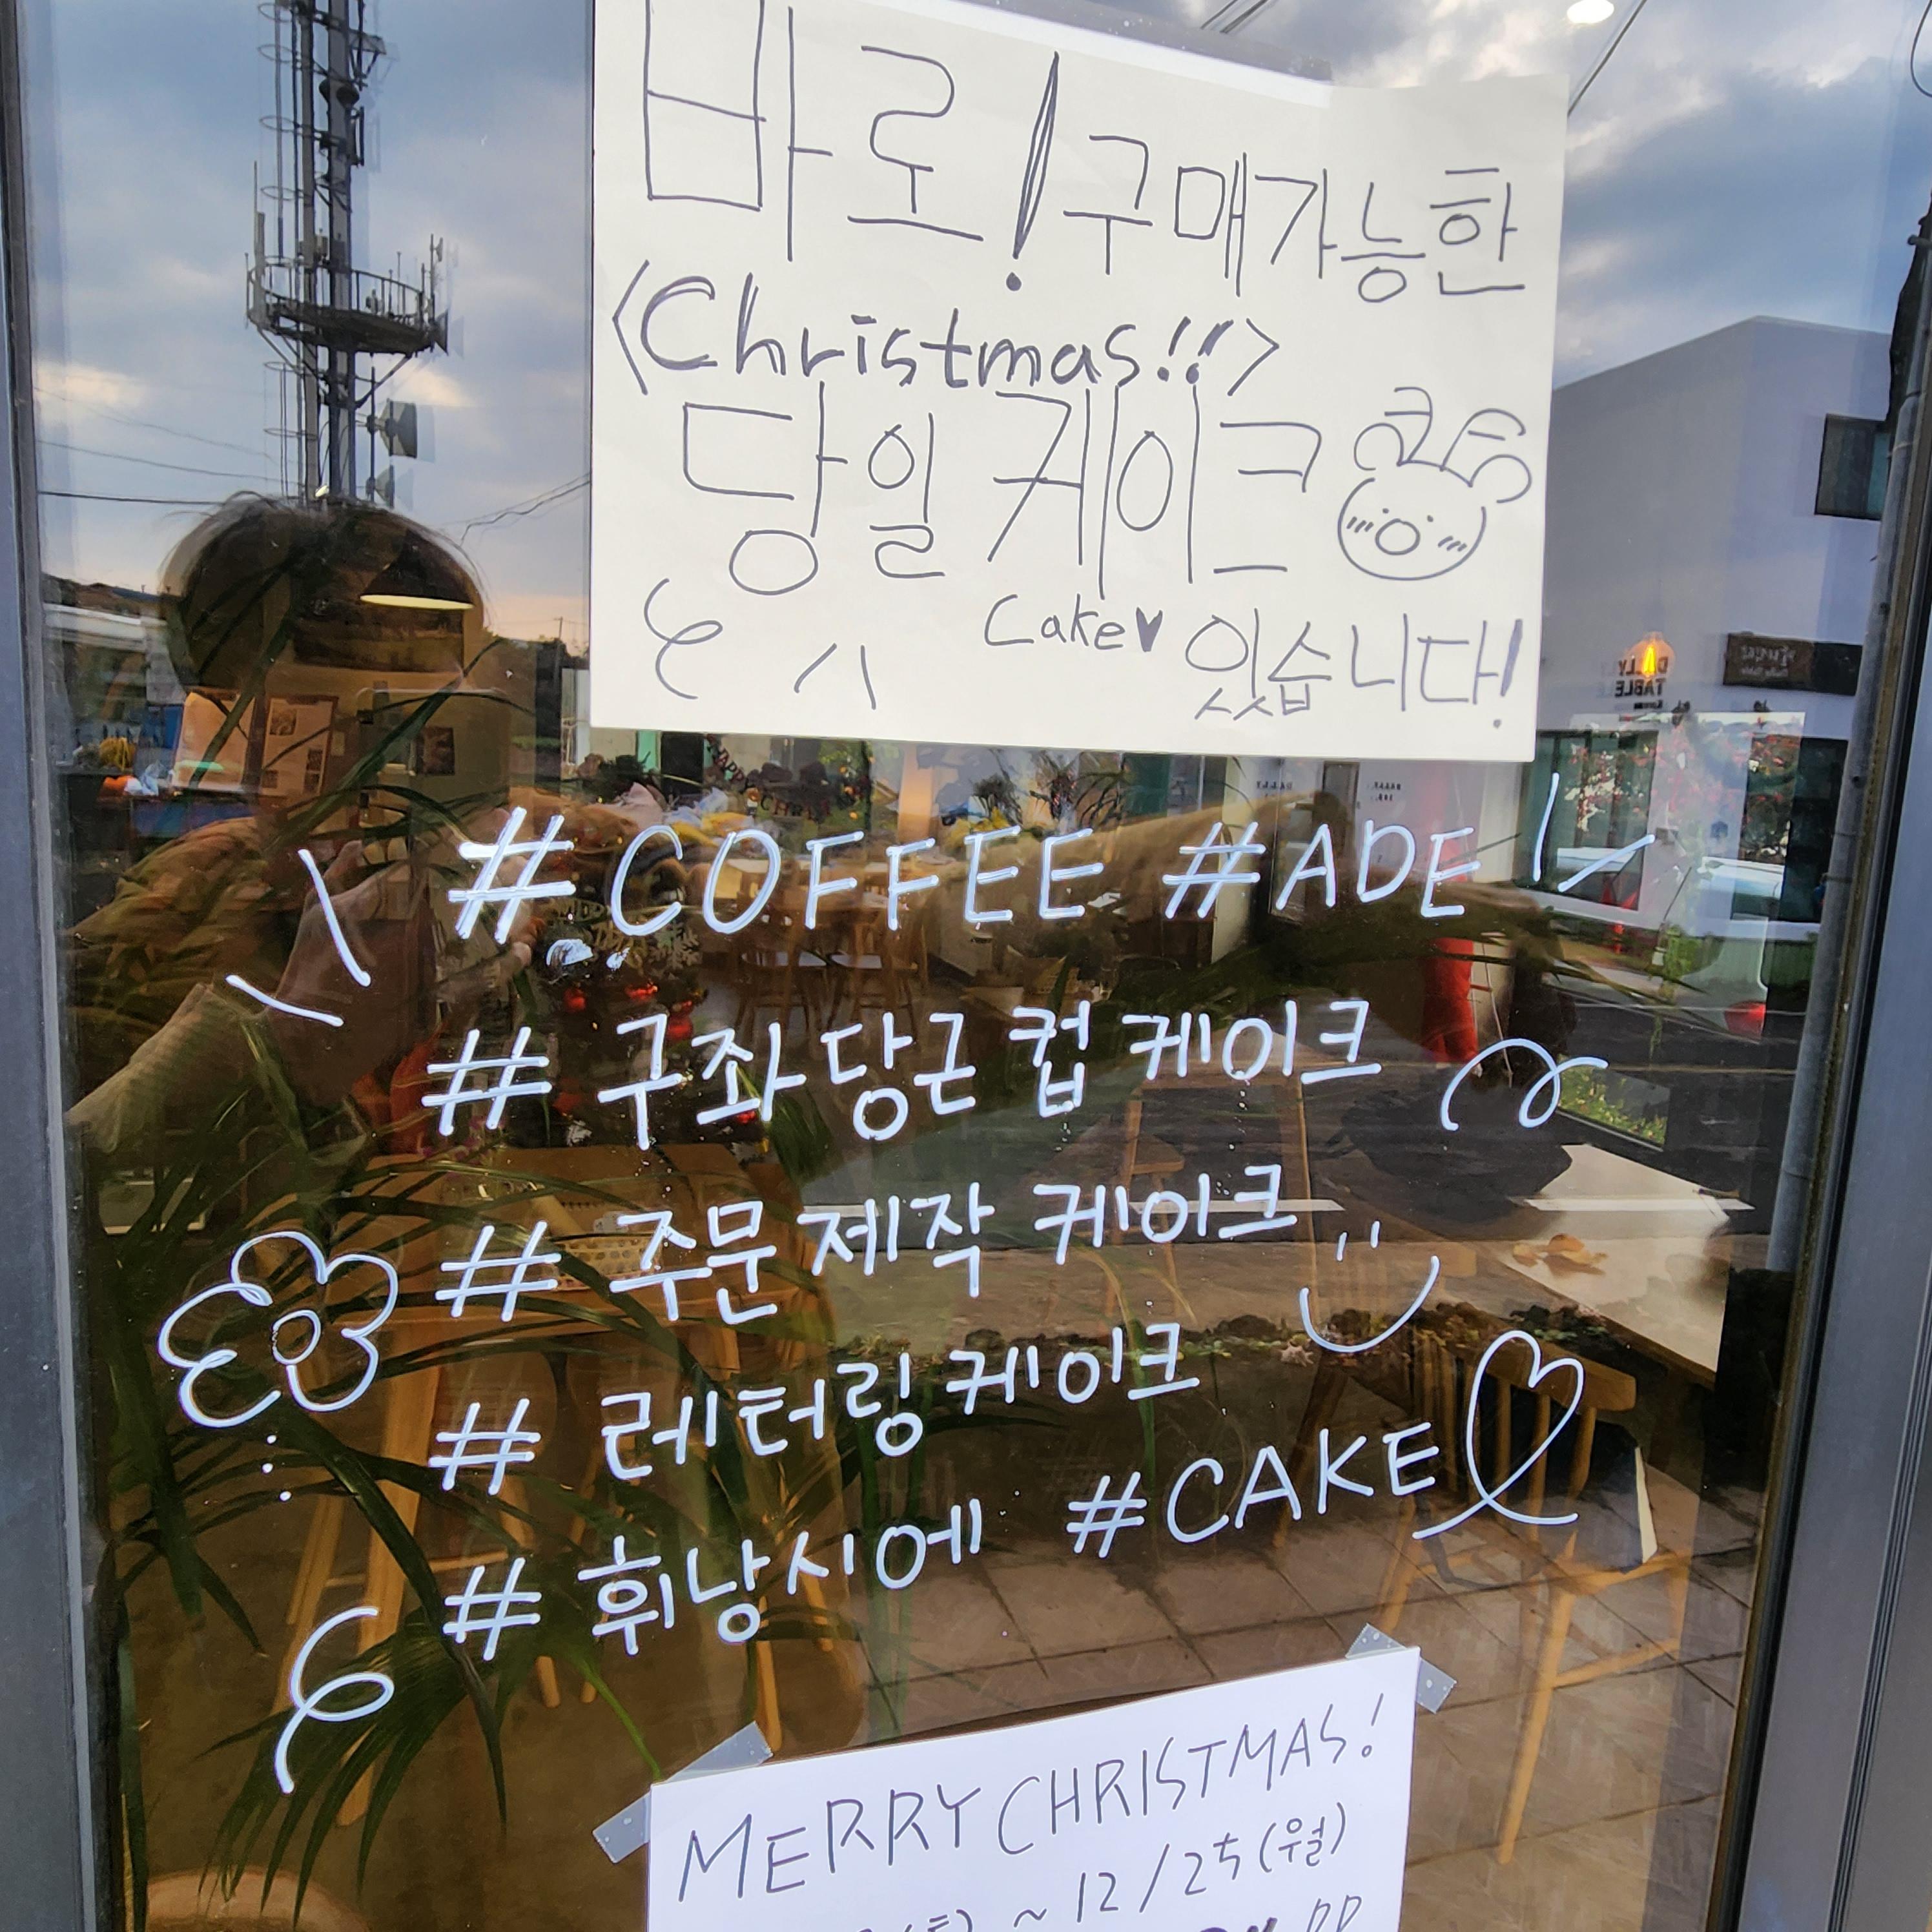 바로! 구매가능한
<Christmas!!>
당일 케이크
Cake♥ 있습니다!
#COFFEE #ADE
#구좌당근 컵케이크
#주문제작 케이크
#레터링케이크
#휘낭시에 #CAKE
MERRY CHRISTMAS!
(토) ~ 12/25 (월)